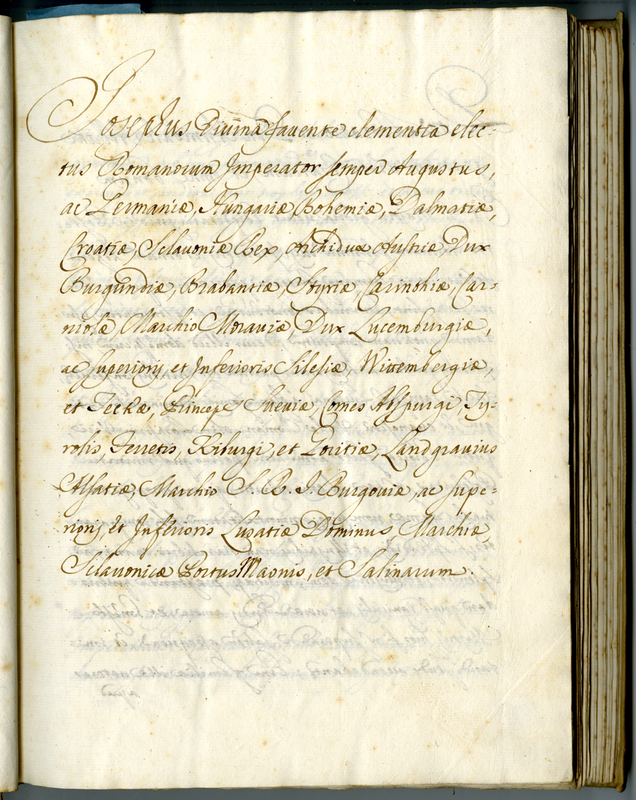 Josephus Divina favente clementia elec-
tus Romanorum Imperator semper Augustus,
ac Germaniæ, Hungariæ, Bohemiæ, Dalmatiæ,
Croatiæ, Sclavoniæ Rex, Archidux Austriæ, Dux
Burgundiæ, Brabantiæ, Styriæ, Carinthiæ, Car-
niolæ Marchio Moraviæ, Dux Lucemburgiæ,
ac superiorij et Inferioris Silesiæ, Wittembergiæ,
et Teckæ, Princeps Sueviæ, Comes Abspurgi, Ty-
rolis, Ferretis, Kiburgi, et Goritiæ, Landgravius
Alsatiæ, Marchio S. R. I. Burgoviæ, ac supe-
riorij et Inferioris Lusatiæ Dominus Marchiæ
Sclavonicæ Portus Maonis, et Salinarum.